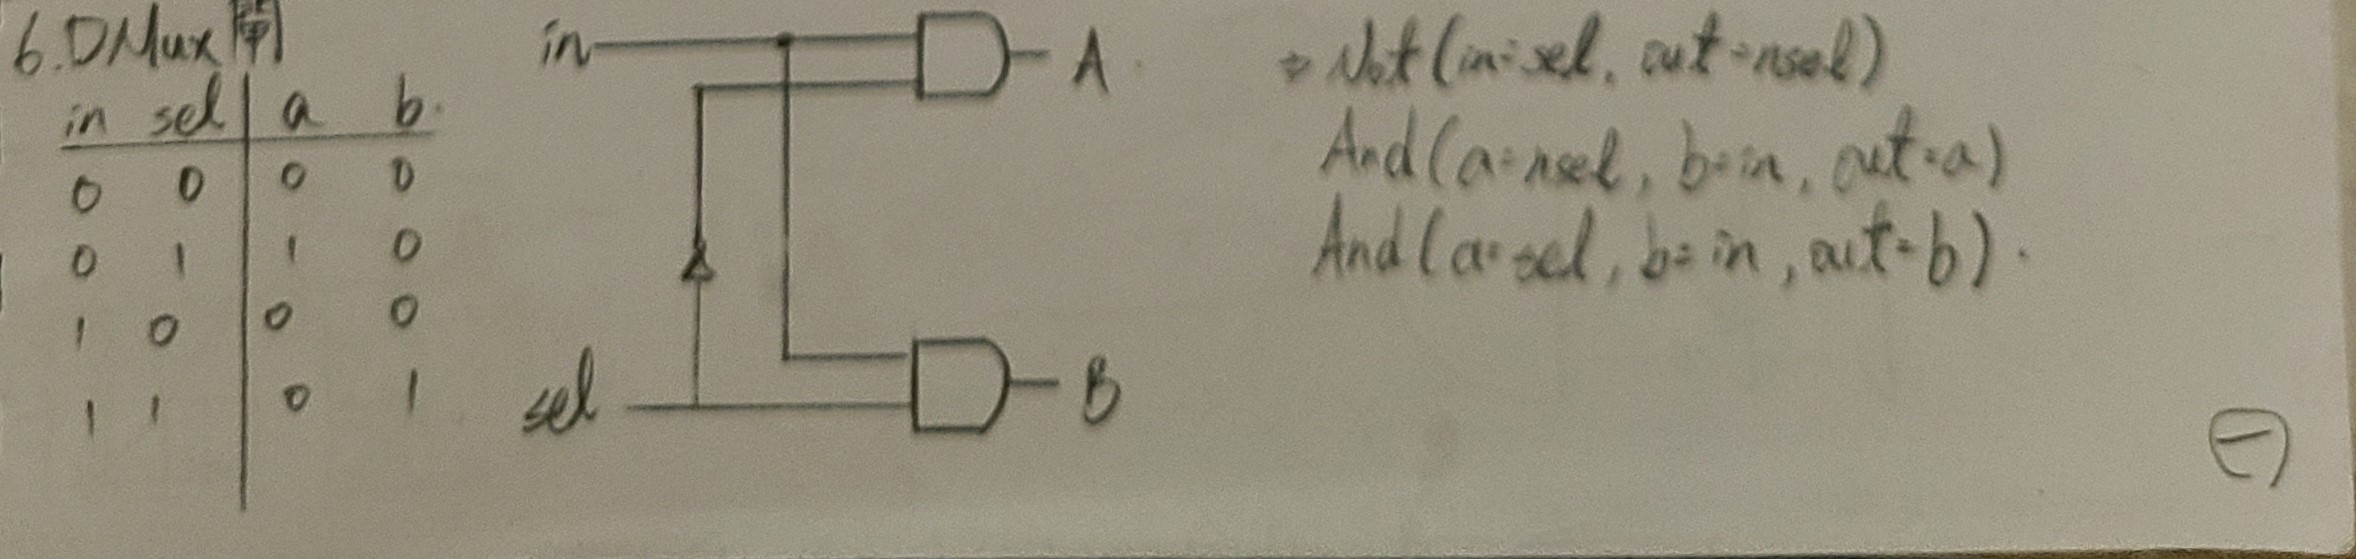 6.DMux閘
in sel a b.
0 0 0 0
0 1 1 0
1 0 0 0
1 1 0 1
in
A
sel
B
⇒ Not(in=sel, out=nsel)
And(a=nsel, b=in, out=a)
And(a=sel, b=in, out=b).
㊀